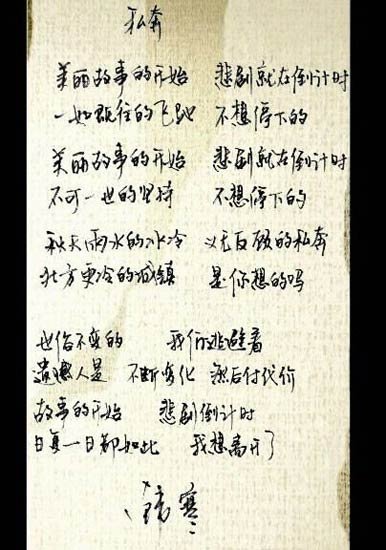 私奔
美丽故事的开始 悲剧就在倒计时
一如既往的飞跑 不想停下的
美丽故事的开始 悲剧就在倒计时
不可一世的坚持 不想停下的
秋天雨水的冰冷 义无反顾的私奔
北方更冷的城镇 是你想的吗
世俗不变的 我们逃避着
遗憾人是 不断变化 然后付代价
故事的开始 悲剧倒计时
日复一日都如此 我想离开了
韩寒